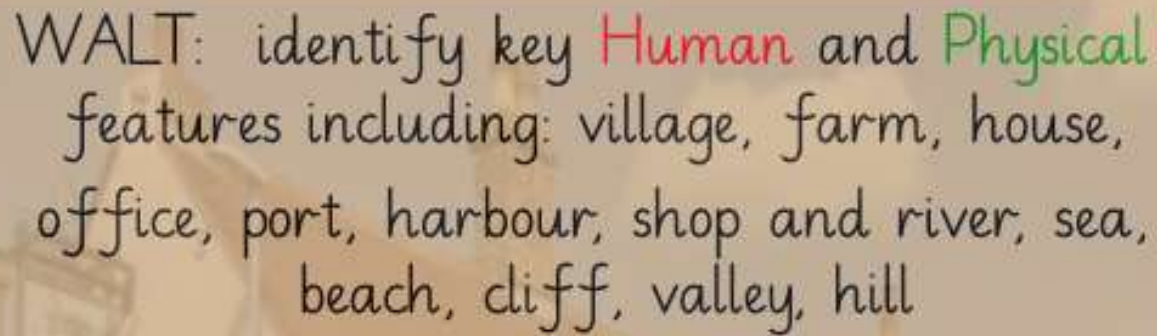 WALT: identify key Human and Physical
features including: village, farm, house,
office, port, harbour, shop and river, sea,
beach, cliff, valley, hill